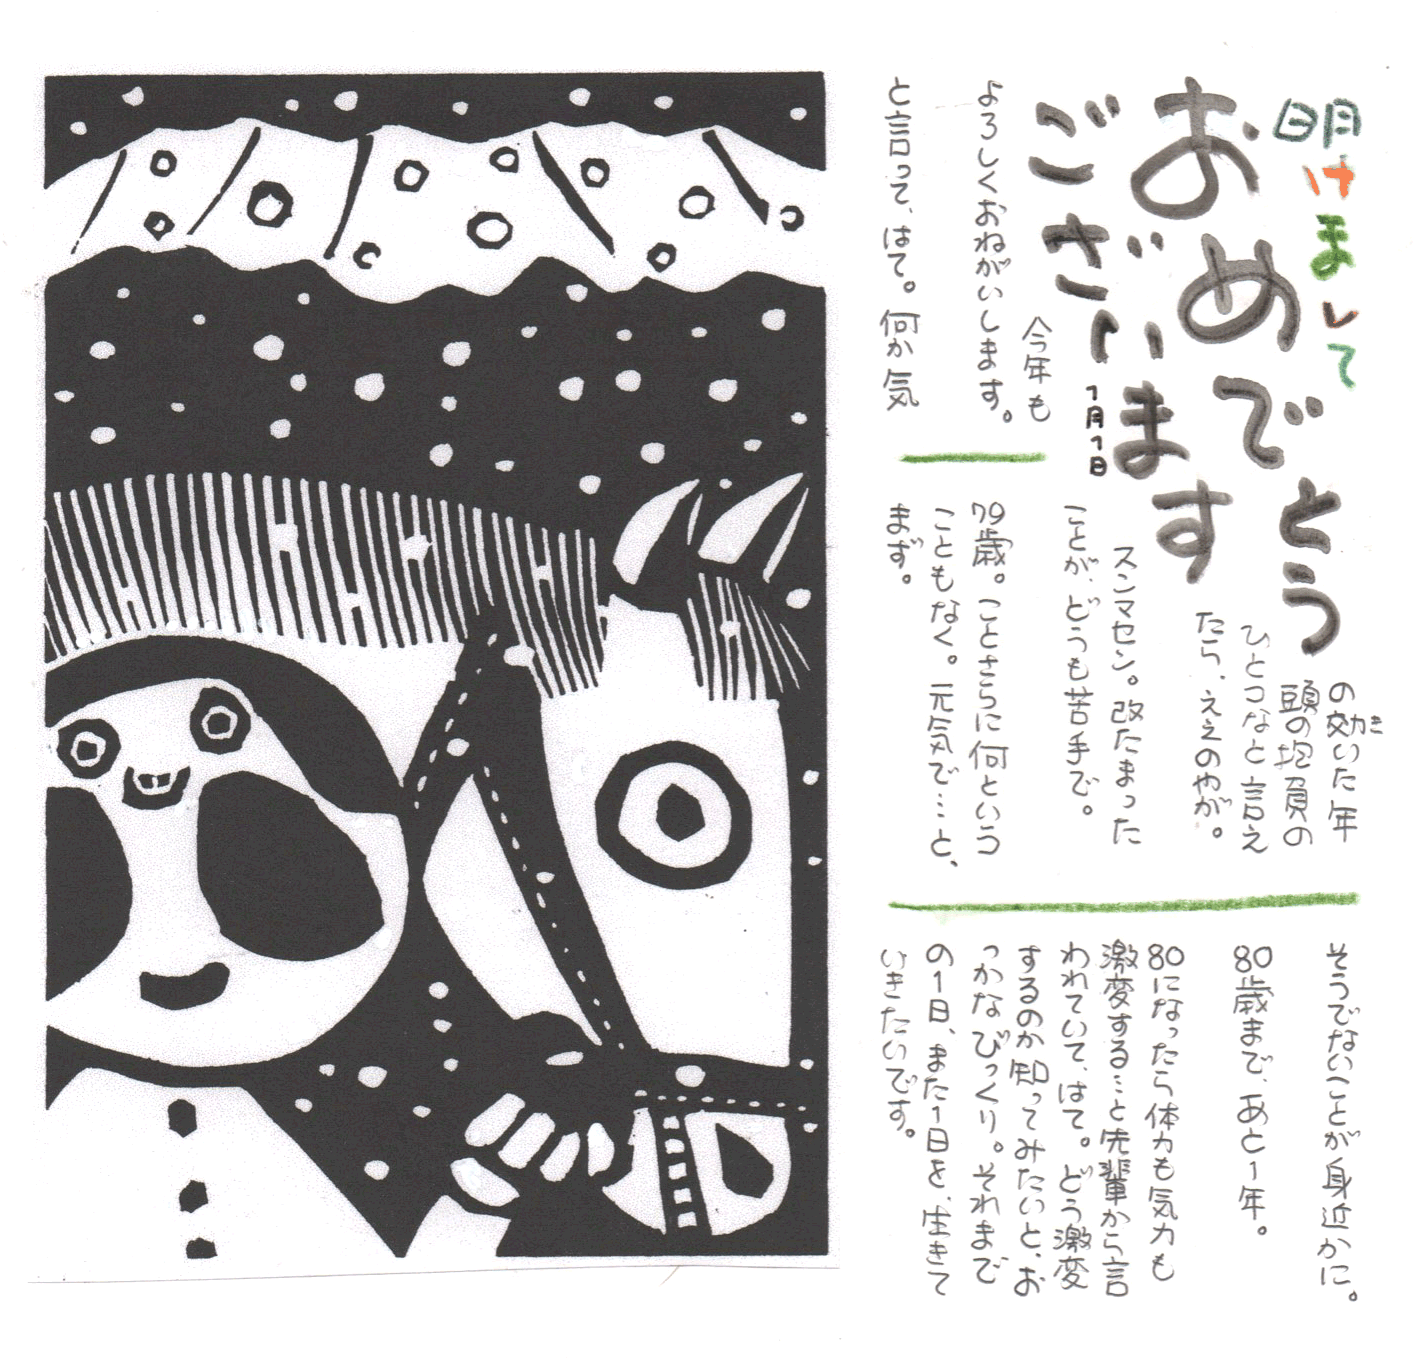 明けまして
おめでとう
ございます
1月1日
今年も
よろしくおねがいします。
と言って、はて。何か気
の効いた年
き
頭の抱負の
ひとつなと言え
たら、ええのやが。
スンマセン。改たまった
ことが、どうも苦手で。
79歳。ことさらに何という
こともなく。元気で…と、
まず。
そうでないことが身近かに。
80歳まで、あと1年。
80になったら体力も気力も
激変する…と先輩から言
われていて、はて。どう激変
するのか知ってみたいと、お
っかなびっくり。それまで
の1日、また1日を、生きて
いきたいです。